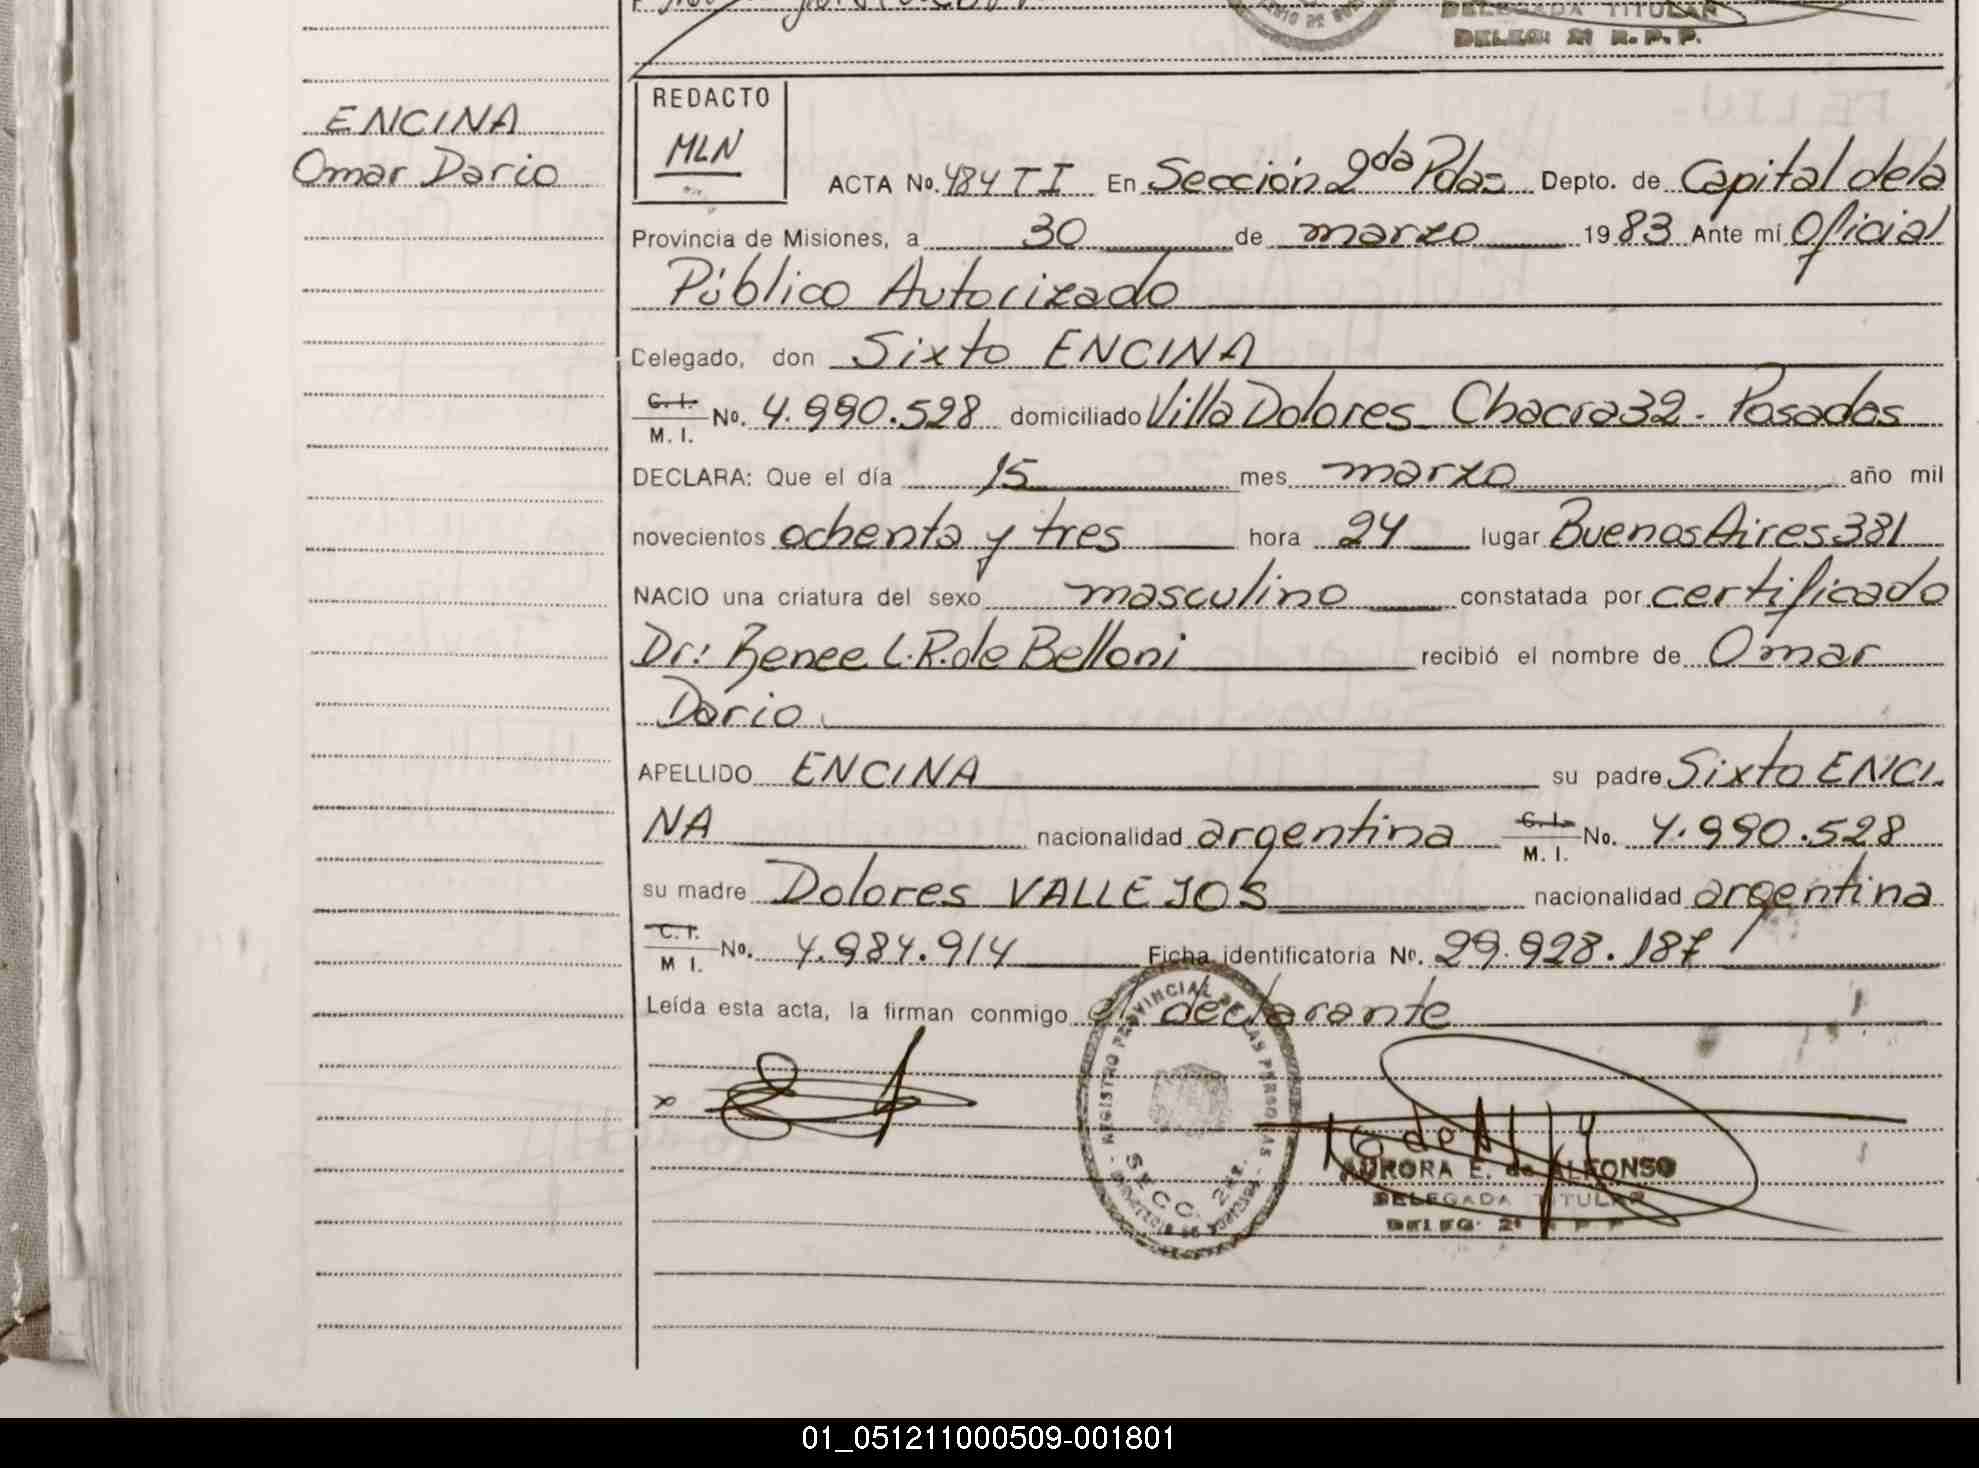 DELEGADA TITULAR
DELEG: 2ª R. P. P.
ENCINA
Omar Dario
REDACTO
MLN
ACTA No. 484 T I En Sección 2da Pdas Depto. de Capital de la
Provincia de Misiones, a 30 de marzo 1983 Ante mí Oficial
Público Autorizado
Celegado, don Sixto ENCINA
C. I. M. I. No. 4.990.528 domiciliado Villa Dolores - Chacra 32 - Posadas
DECLARA: Que el día 15 mes marzo año mil
novecientos ochenta y tres hora 24 lugar Buenos Aires 381
NACIO una criatura del sexo masculino constatada por certificado
Dr: Renee L. R. de Belloni recibió el nombre de Omar
Dario
APELLIDO ENCINA su padre Sixto ENCI-
NA nacionalidad argentina C. I. M. I. No. 4.990.528
su madre Dolores VALLEJOS nacionalidad argentina
C. I. M I. No. 4.984.914 Ficha identificatoria No. 29.928.187
Leída esta acta, la firman conmigo el declarante
x
REGISTRO PROVINCIAL DE LAS PERSONAS
SECC. 2da.
AURORA E. de ALFONSO
DELEGADA TITULAR
DELEG 2ª R P P
01_051211000509-001801